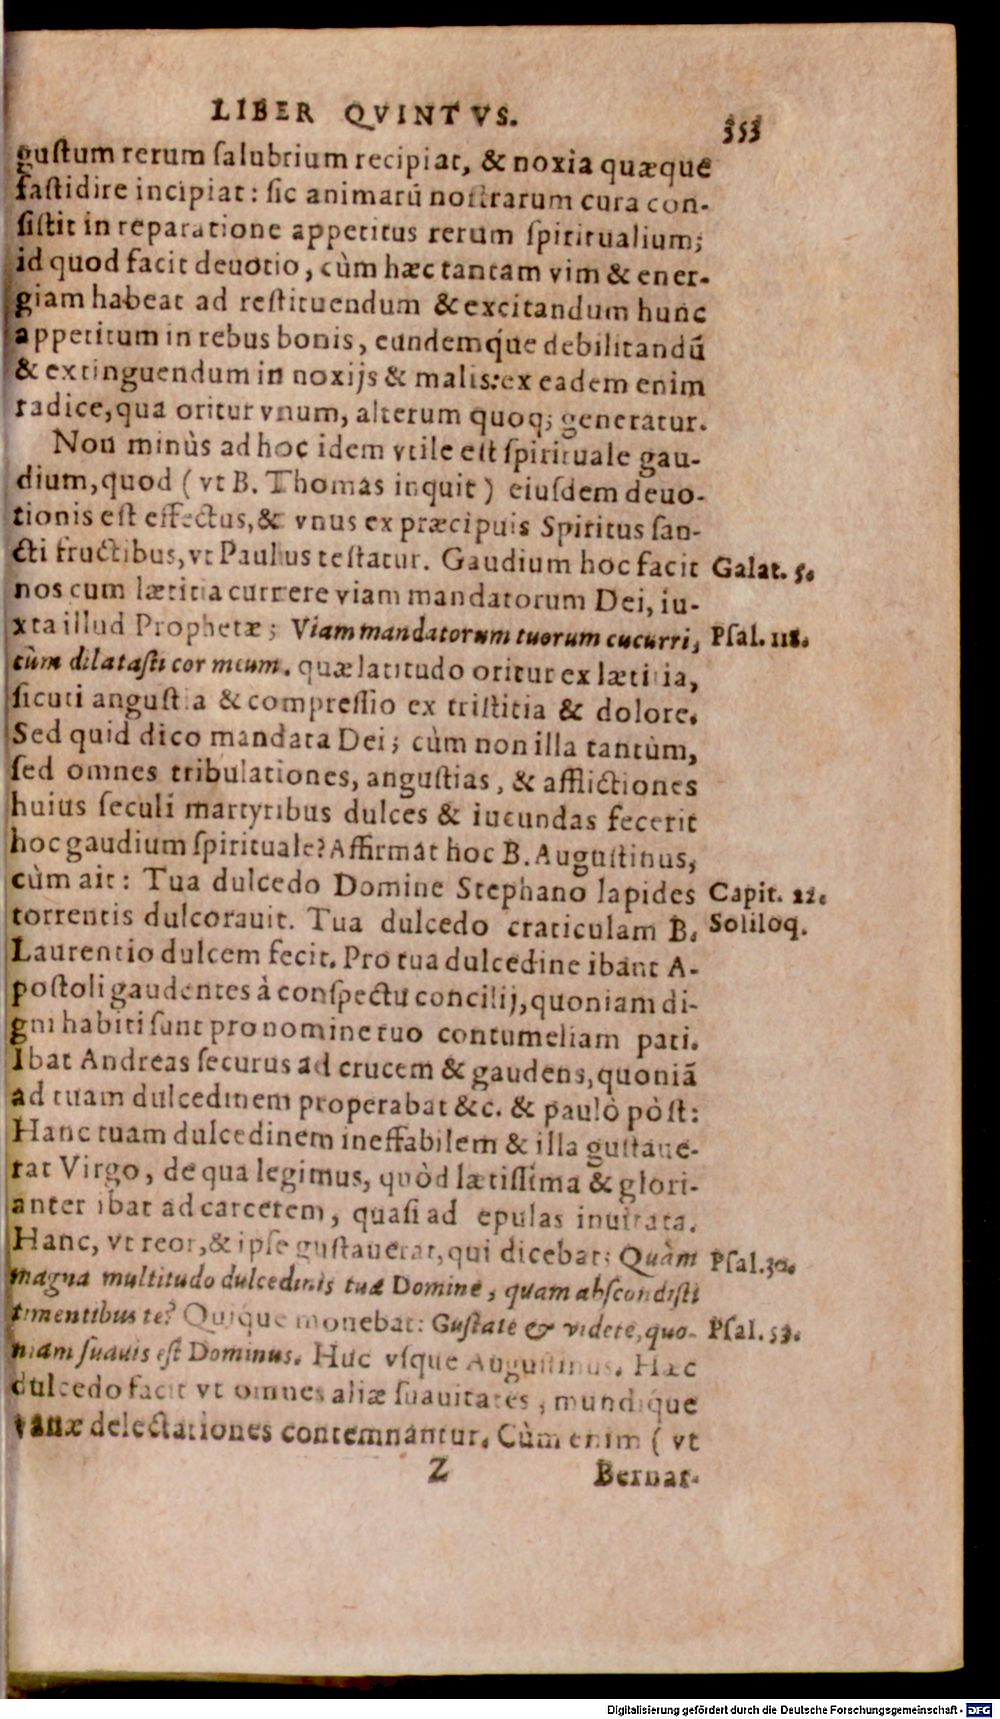 LIBER QVINTVS. 353
gustum rerum salubrium recipiat, & noxia quæque
fastidire incipiat: sic animarũ nostrarum cura con-
sistit in reparatione appetitus rerum spiritualium;
id quod facit deuotio, cùm hæc tantam vim & ener-
giam habeat ad restituendum & excitandum hunc
appetitum in rebus bonis, eundemq́ue debilitandũ
& extinguendum in noxijs & malis: ex eadem enim
radice, qua oritur vnum, alterum quoq; generatur.
Non minùs ad hoc idem vtile est spirituale gau-
dium, quod (vt B. Thomas inquit) eiusdem deuo-
tionis est effectus, & vnus ex præcipuis Spiritus san-
cti fructibus, vt Paulus testatur. Gaudium hoc facit
Galat. 5.
nos cum lætitia currere viam mandatorum Dei, iu-
xta illud Prophetæ; Viam mandatorum tuorum cucurri,
Psal. 118.
cùm dilatasti cor meum. quæ latitudo oritur ex lætitia,
sicuti angustia & compressio ex tristitia & dolore.
Sed quid dico mandata Dei; cùm non illa tantùm,
sed omnes tribulationes, angustias, & afflictiones
huius seculi martyribus dulces & iucundas fecerit
hoc gaudium spirituale? Affirmat hoc B. Augustinus,
cùm ait: Tua dulcedo Domine Stephano lapides
Capit. 22.
torrentis dulcorauit. Tua dulcedo craticulam B.
Soliloq.
Laurentio dulcem fecit. Pro tua dulcedine ibant A-
postoli gaudentes à conspectu concilij, quoniam di-
gni habiti sunt pro nomine tuo contumeliam pati.
Ibat Andreas securus ad crucem & gaudens, quoniã
ad tuam dulcedinem properabat &c. & paulò pòst:
Hanc tuam dulcedinem ineffabilem & illa gustaue-
rat Virgo, de qua legimus, quòd lætissima & glori-
anter ibat ad carcerem, quasi ad epulas inuitata.
Hanc, vt reor, & ipse gustauerat, qui dicebat: Quàm
Psal. 30.
magna multitudo dulcedinis tuæ Domine, quam abscondisti
timentibus te? Quique monebat: Gustate & videte, quo-
Psal. 53.
niam suauis est Dominus. Huc vsque Augustinus. Hæc
dulcedo facit vt omnes aliæ suauitates, mundique
vanæ delectationes contemnantur. Cùm enim (vt
Z Bernar-
Digitalisierung gefördert durch die Deutsche Forschungsgemeinschaft - DFG